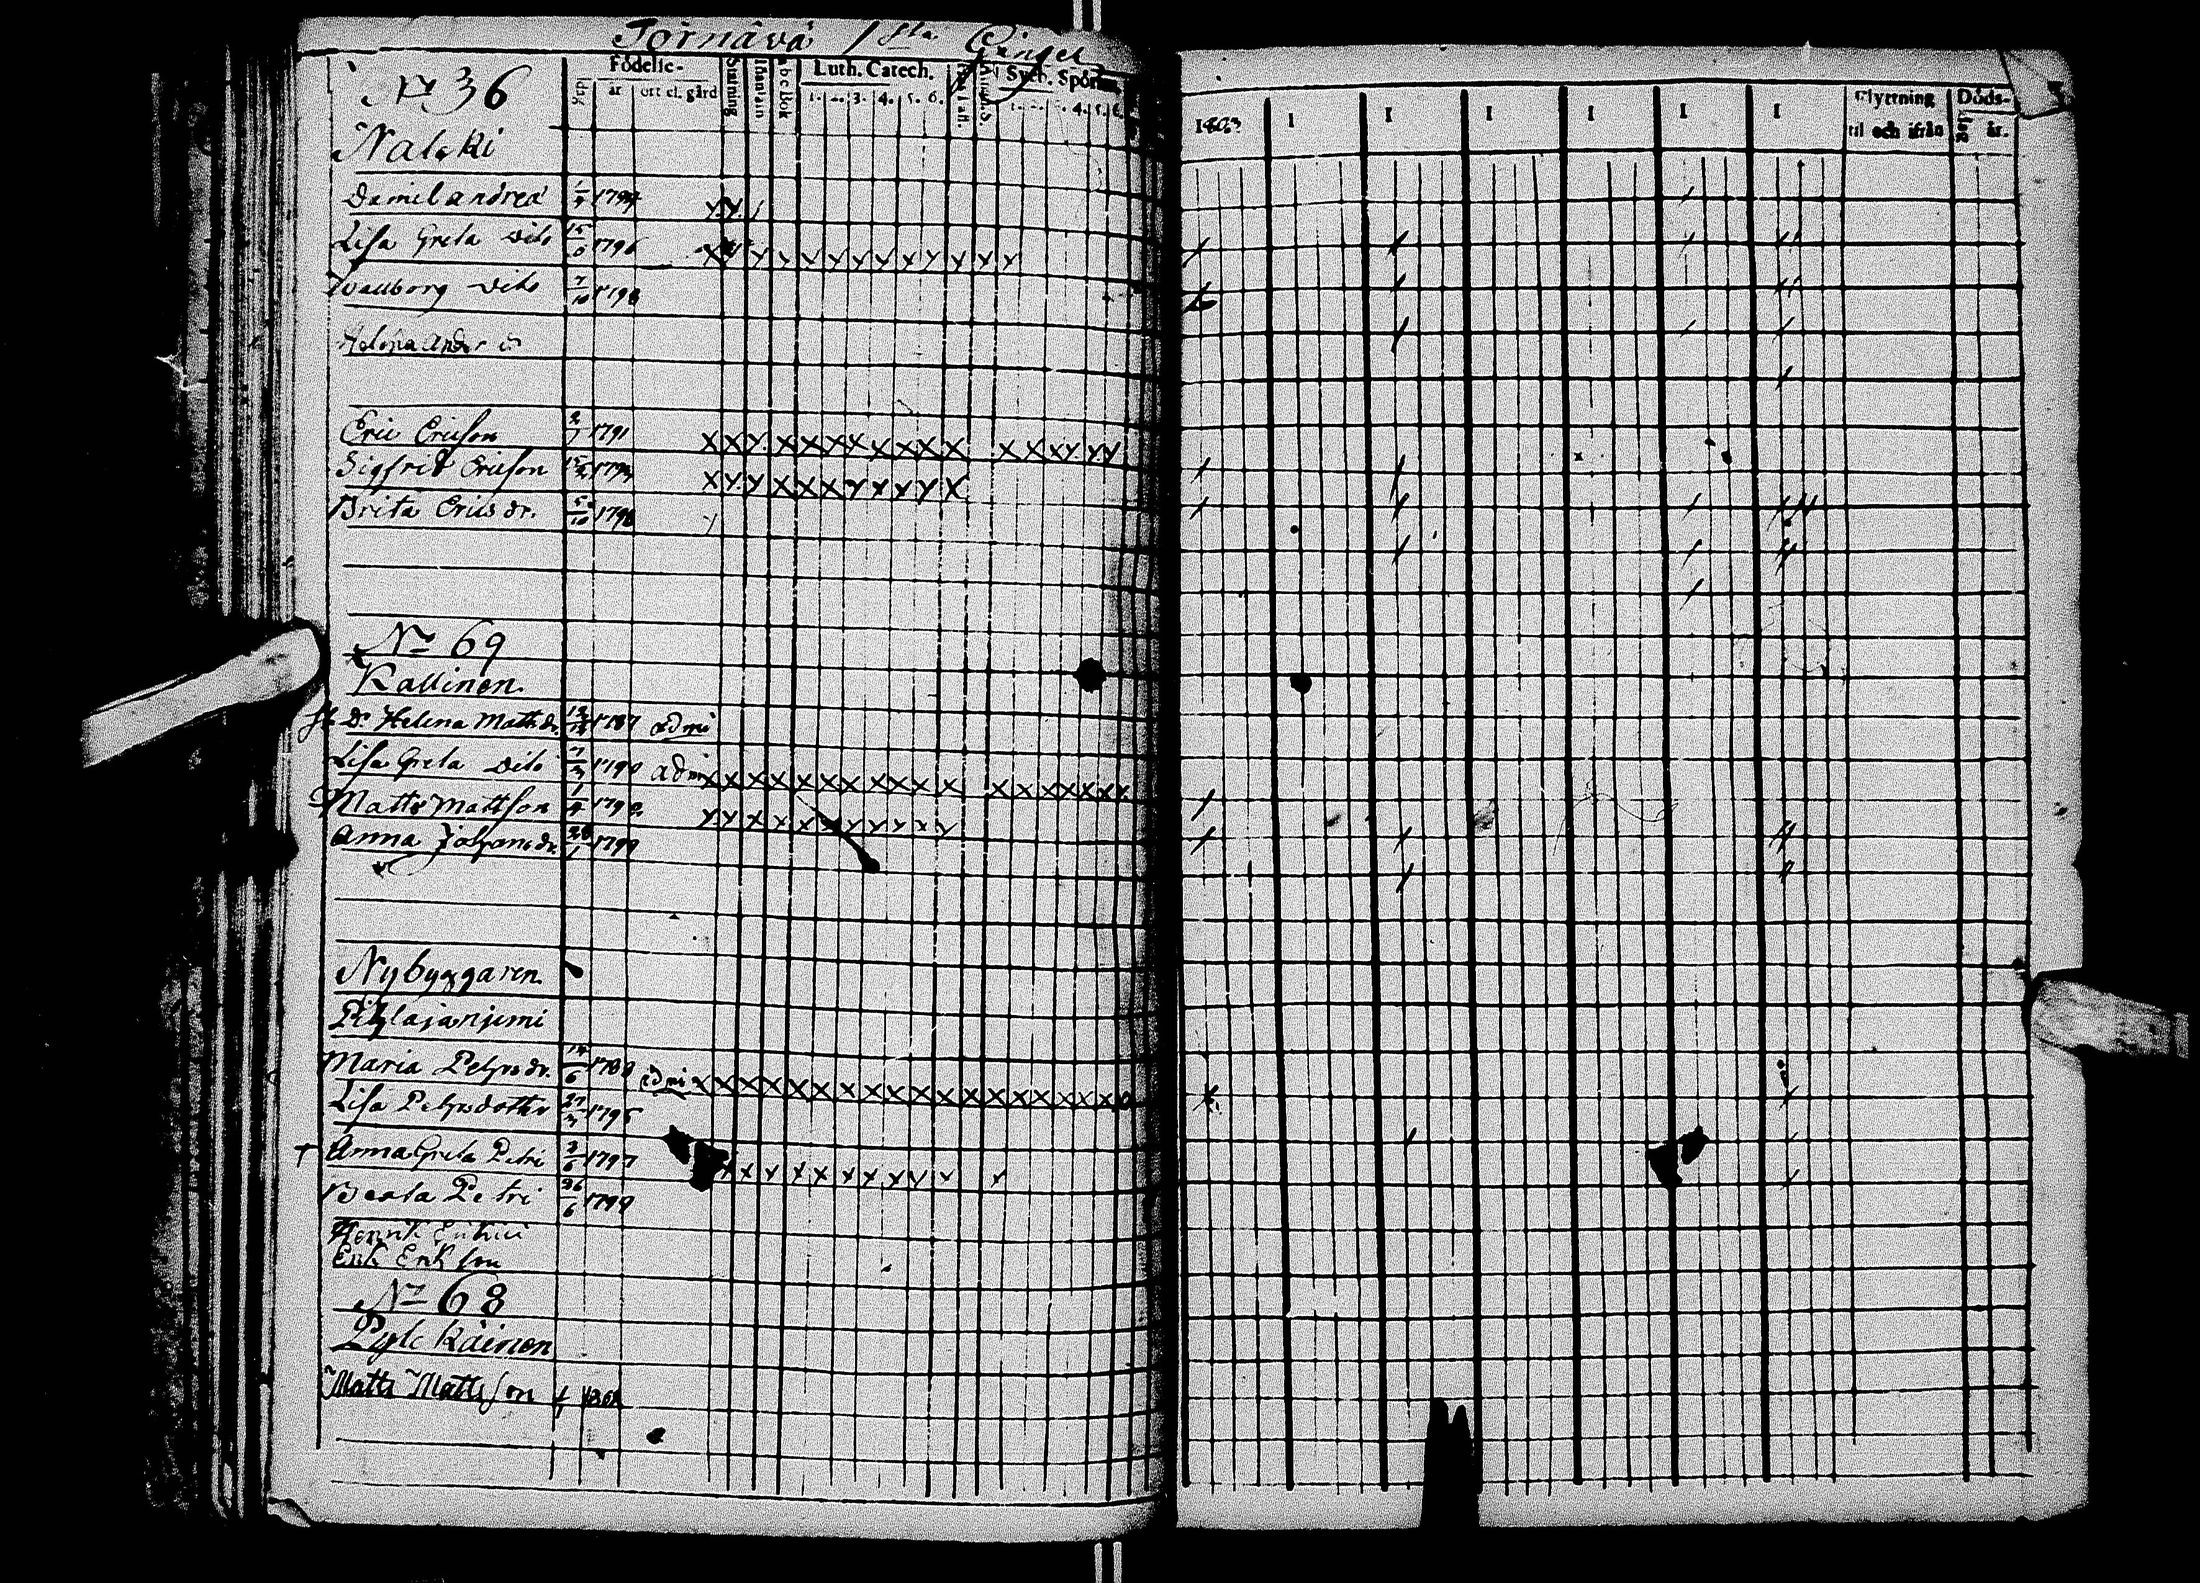 Törnävä 1sta Ringel
No 36 Födelse-
dag år ort el. gård Stafning Innan i in a b c Bok Luth. Catech. 1. 2. 3. 4. 5. 6. Syeb. Spörsm. 1. 2. 3. 4. 5. 6.
1803 1 1 1 1 1 1 Flyttning til och ifrån Döds- dag år.
Nalski
Daniel andreæ 1794
Lisa Greta dito 15 1796
Wallborg dito 7/10 1798
Helena Ander
Eric Ericson 1791
Sigfrid Ericson 1794
Brita Erics dr. 5/10 1798
No 69
Kallinen
Dr Helena Matts dr. 1787 admi
Lisa Greta dito 7/3 1790 adm
Matts Mattson 1792
Anna Johans dr. 28/1 1799
Nybyggaren
Pihlajanjemi
Maria Petrs dr. 14/6 1788 admi
Lisa Petersdotter 27/3 1795
+ Anna Greta Petri 2/6 1797
Beata Petri 26/6 1799
Henrik Eriksi
Erik Erikson
No 68
Pylc käinen
Matts Mattsson